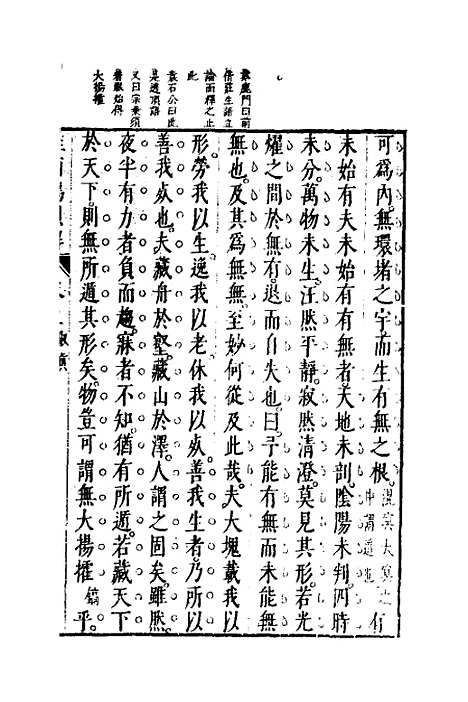 鹿門曰前
借莊生語立
論而釋之止
此
袁石公曰此
是透頂語
又曰宗乗須
着眼始得
大揚搉
可爲內。無環堵之宇而生有無之根。混冥大冥之中謂道也有
未始有夫未始有有無者。天地未剖。陰陽未判。四時
未分。萬物未生。汪然平靜。寂然清澄。莫見其形。若光
燿之間於無有退而自失也。曰予能有無而未能無
無也。及其爲無無至妙何從及此哉。夫大塊載我以
形。勞我以生。逸我以老。休我以死。善我生者乃所以
善我死也。夫藏舟於壑。藏山於澤。人謂之固矣。雖然
夜半有力者負而趨。寐者不知。猶有所遁。若藏天下
於天下。則無所遁其形矣。物豈可謂無大揚搉乎。